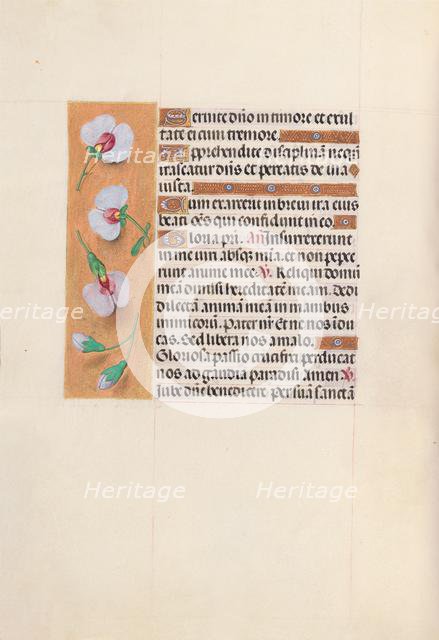 Seruite dño in timore et exul
tate ei cum tremore.
Apprehendite disciplinā ne qñ
irascatur dñs et pereatis de uia
iusta.
Cum exarserit in breui ira eius
beati oēs qui confidunt in eo.
Gloria pri. An̄ Insurrexerunt
in me uiri absq; mīa. et non peper
cerunt anime mee. V. Reliqui domū
meā dimisi hereditatē meā. Dedi
dilectā animā meā in manibus
inimicorū. Pater nr̄ Et ne nos īdu
cas. Sed libera nos a malo.
Gloriosa passio crucifixi perducat
nos ad gaudia paradisi. Amen. V.
Iube dñe benedicere. Per suā sanctā
Heritage
Heritage
Heritage
Heritage
Heritage